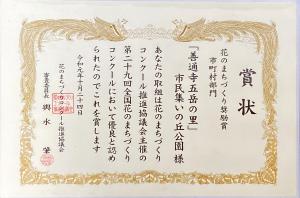 賞状
花のまちづくり奨励賞
市町村部門
『善通寺五岳の里』
市民集いの丘公園 様
あなたの取組は花のまちづくり
コンクール推進協議会主催の
第二十九回全国花のまちづくり
コンクールにおいて優良と認め
られたのでこれを賞します
令和元年十月二十四日
花のまちづくりコンクール推進協議会
審査委員長 輿水 肇